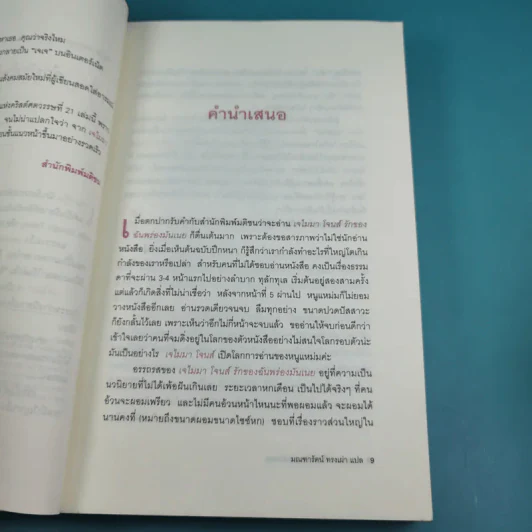 หาเธอ..คุณว่าจริงไหม
กลายเป็น "เจเจ" บนอินเตอร์เน็ต
สังคมสมัยใหม่ที่ผู้เขียนสอดใส่อารมณ์
แห่งคริสต์ศตวรรษที่ 21 เล่มนี้
จนไม่น่าแปลกใจว่า จาก เจไมมา
สำนักพิมพ์มติชน
คำนำเสนอ
เมื่อตกปากรับคำกับสำนักพิมพ์มติชนว่าจะอ่าน เจไมมา โจนส์ รักของ
ฉันพร่องมันเนย ก็ตื่นเต้นมาก เพราะต้องขอสารภาพว่าไม่ใช่นักอ่าน
หนังสือ ยิ่งเมื่อเห็นต้นฉบับปึกหนา ก็รู้สึกว่าเรากำลังทำอะไรที่ใหญ่โตเกิน
กำลังของเราหรือเปล่า สำหรับคนที่ไม่ได้ชอบอ่านหนังสือ คงเป็นเรื่องธรรม
ดาที่จะผ่าน 3-4 หน้าแรกไปอย่างลำบาก ทุลักทุเล เริ่มต้นอยู่สองสามครั้ง
แต่แล้วก็เกิดสิ่งที่ไม่น่าเชื่อว่า หลังจากหน้าที่ 5 ผ่านไป หนูแหม่มก็ไม่ยอม
วางหนังสืออีกเลย อ่านรวดเดียวจนจบ ลืมทุกอย่าง ขนาดปวดปัสสาวะ
ก็ยังกลั้นไว้เลย เพราะเห็นว่าอีกไม่กี่หน้าจะจบแล้ว ขออ่านให้จบก่อนดีกว่า
เข้าใจเลยว่าคนที่จมดิ่งอยู่ในโลกของตัวหนังสืออย่างไม่สนใจโลกรอบตัวน่ะ
มันเป็นอย่างไร เจไมมา โจนส์ เปิดโลกการอ่านของหนูแหม่มค่ะ
อรรถรสของ เจไมมา โจนส์ รักของฉันพร่องมันเนย อยู่ที่ความเป็น
นวนิยายที่ไม่ได้เพ้อฝันเกินเลย ระยะเวลาหกเดือน เป็นไปได้จริงๆ ที่คน
อ้วนจะผอมเพรียว และไม่มีคนอ้วนหน้าไหนนะที่พอผอมแล้ว จะผอมได้
นานคงที่ (หมายถึงขนาดผอมขนาดไซซ์หก) ชอบที่เรื่องราวส่วนใหญ่ใน
มณฑารัตน์ ทรงเผ่า แปล 9